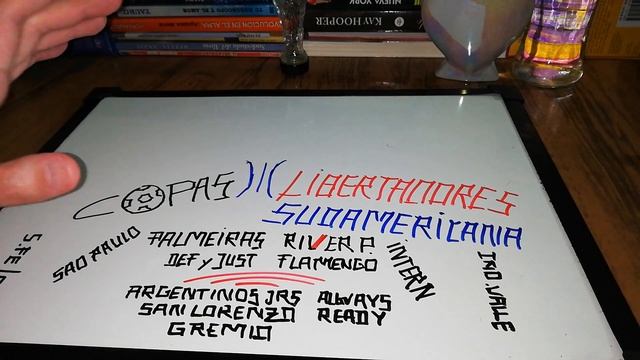 NUEVA YORK
KAY HOOPER
COPAS )|( LIBERTADORES
SUDAMERICANA
S.FE
SAO PAULO
PALMEIRAS RIVER P.
DEF y JUST FLAMENGO
INTERN
IND.VALLE
ARGENTINOS JRS ALWAYS
SAN LORENZO READY
GREMIO